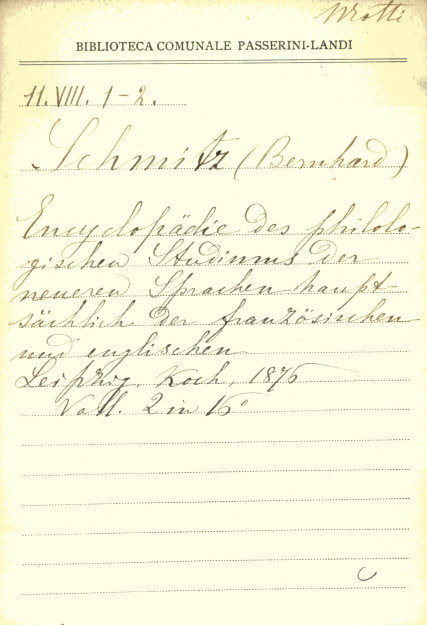 Motti
BIBLIOTECA COMUNALE PASSERINI-LANDI
11. VIII. 1-2.
Schmitz (Bernhard)
Encyclopädie des philolo-
gischen Studiums der
neueren Sprachen haupt-
sächlich der französischen
und englischen
Leipzig, Koch, 1876
Voll. 2 in 16°
C